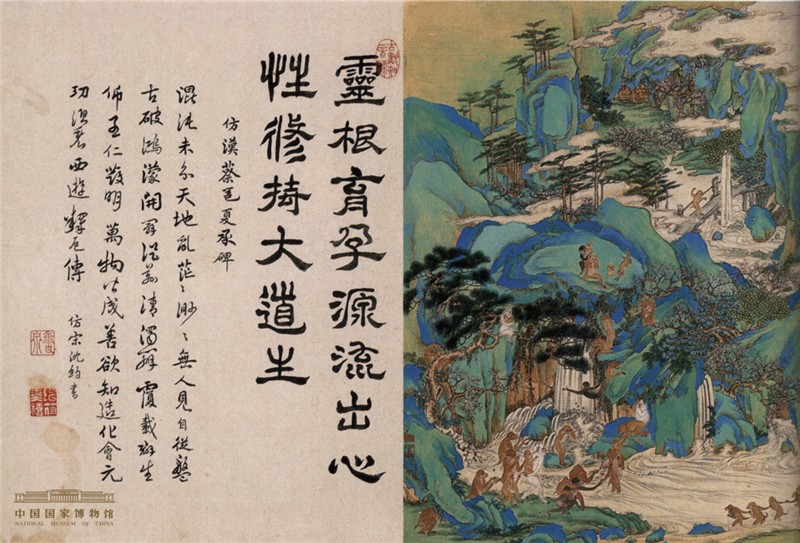 靈根育孕源流出心
性修持大道生
仿漢蔡邕夏承碑
混沌未分天地亂茫〻渺〻無人見自從盤
古破鴻濛開闢從茲清濁辨覆載群生
仰至仁發明萬物皆成善欲知造化會元
功須看西遊釋厄傳 仿宋沈約書
中国国家博物馆
NATIONAL MUSEUM OF CHINA